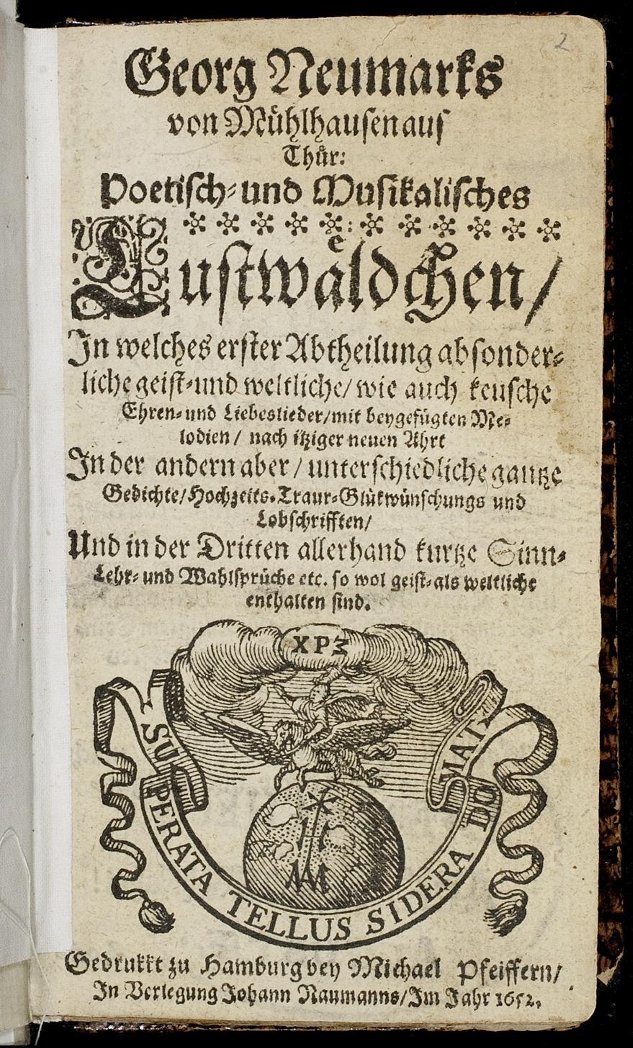 2
Georg Neumarks
von Mühlhausen aus
Thür:
Poetisch- und Musikalisches
Lustwäldchen/
In welches erster Abtheilung absonder-
liche geist- und weltliche/ wie auch keusche
Ehren- und Liebeslieder/ mit beygefügten Me-
lodien/ nach itziger neuen Ahrt
In der andern aber/ unterschiedliche gantze
Gedichte/ Hochzeits- Traur- Glükwünschungs und
Lobschrifften/
Und in der Dritten allerhand kurtze Sinn-
Lehr- und Wahlsprüche etc. so wol geist- als weltliche
enthalten sind.
SUPERATA TELLUS SIDERA DONAT
Gedrukkt zu Hamburg bey Michael Pfeiffern/
In Verlegung Johann Naumanns/ Im Jahr 1652.